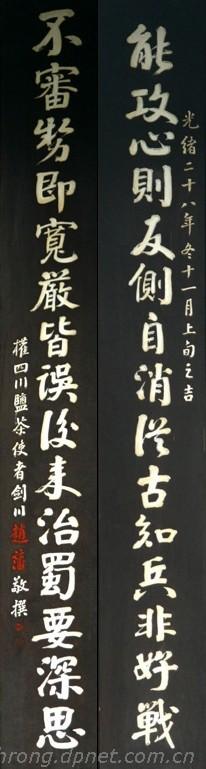 光緒二十八年冬十一月上旬之吉
能攻心則反側自消從古知兵非好戰
不審勢即寬嚴皆誤後来治蜀要深思
權四川鹽茶使者劍川趙藩敬撰
hrong.dpnet.com.cn